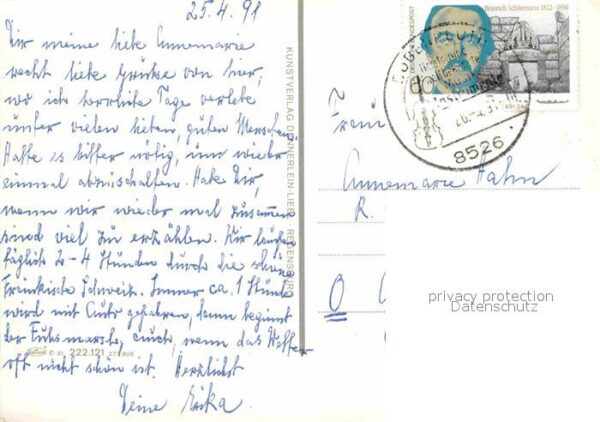 25.4.91
Dir meine liebe Annemarie
recht liebe Grüsse von hier,
wo ich herrliche Tage verlebe
unter vielen lieben, guten Menschen.
Hatte es bitter nötig, mal wieder
einmal abzuschalten. Habe Dir,
wenn wir wieder mal zusammen
sind viel zu erzählen. Wir laufen
täglich 2-4 Stunden durch die schöne
Fränkische Schweiz. Immer ca. 1 Stunde
wird mit Auto gefahren, dann beginnt
der Fußmarsch, auch, wenn das Wetter
oft nicht schön ist. Herzlichst
Deine Erika.
© 31 222.121
KUNSTVERLAG DENNERLEIN-LIEDL REGENSBURG
DEUTSCHE BUNDESPOST
Heinrich Schliemann 1822-1890
60
BUBENREUTH
8526
Frau
Annemarie Hahn
R.
O
privacy protection
Datenschutz